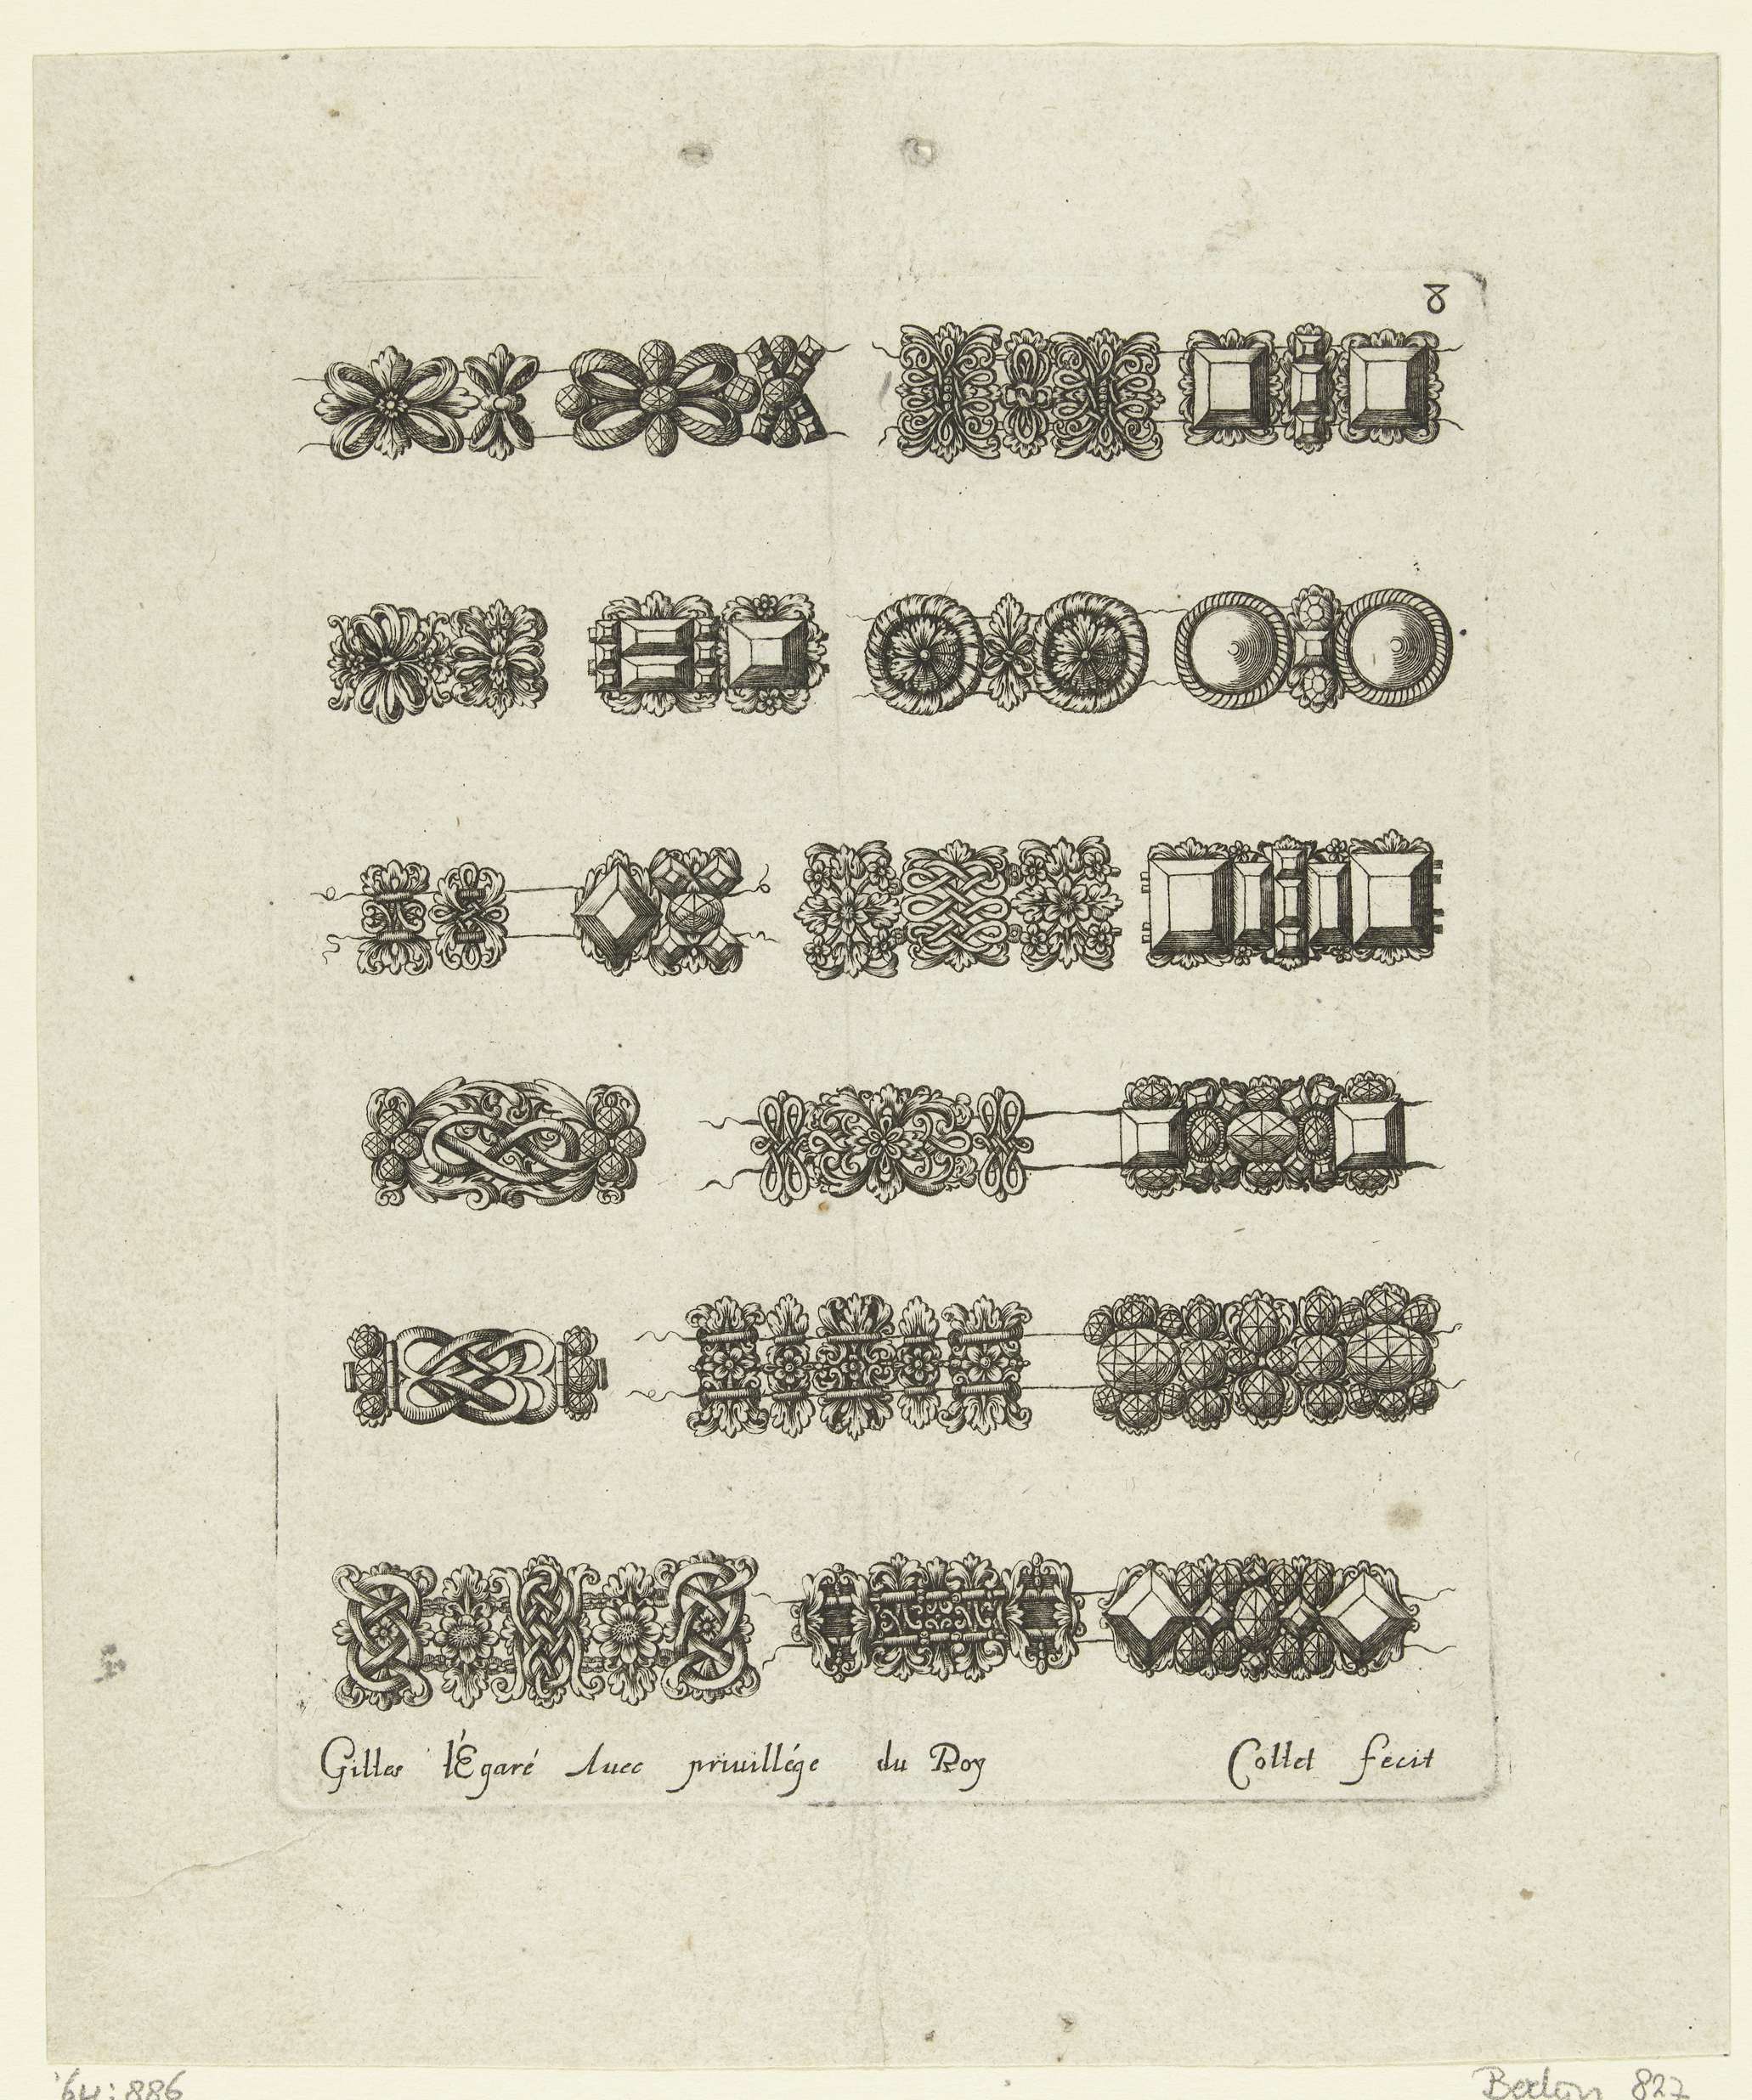 8
Gilles l'Egaré Avec priuillége du Roy Collet fecit
'64:886 Berlin 827